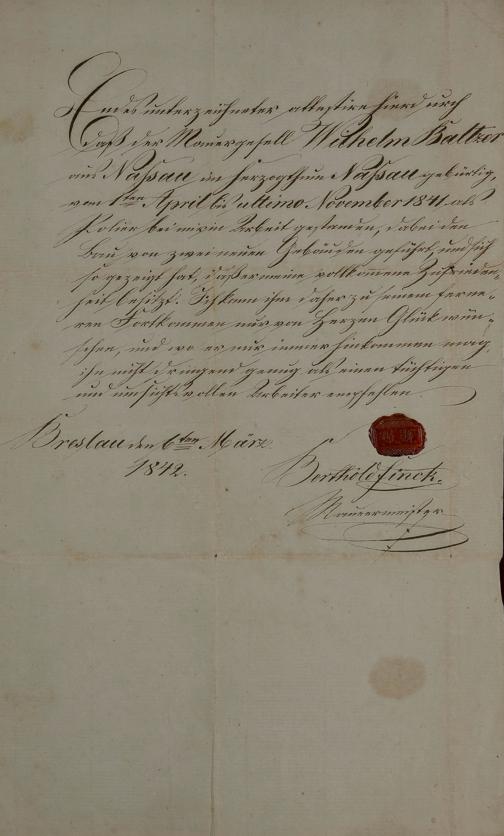 Endes unterzeichneter attestire hierdurch
daß der Mauergesell Wilhelm Baltzer
aus Naßau im Herzogthum Naßau gebürtig,
vom 1ten April bis ultimo November 1841 als
Polier bei mir in Arbeit gestanden, dabei den
Bau von zwei neuen Gebäuden geführt, und sich
so gezeigt hat, daß er meine vollkommene Zufrieden-
heit besitzt. Ich kann ihm daher zu seinem ferne-
ren Fortkommen nur von Herzen Glück wün-
schen, und wo er nur immer hinkommen mag,
ihn nicht dringend genug als einen tüchtigen
und umsichtsvollen Arbeiter empfehlen.
Breslau den 6ten März
1842.
Berthold Finck.
Mauermeister